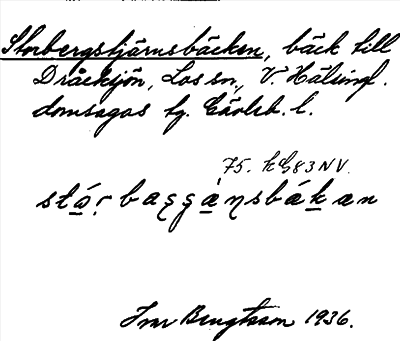 Storbergstjärnsbäcken, bäck till
Dråcksjön, Los sn, V. Hälsingl.
domsagas tg. Gävleb. l.
75. kG83NV.
stár baggànsbákan
Imr Bengtsson 1936.